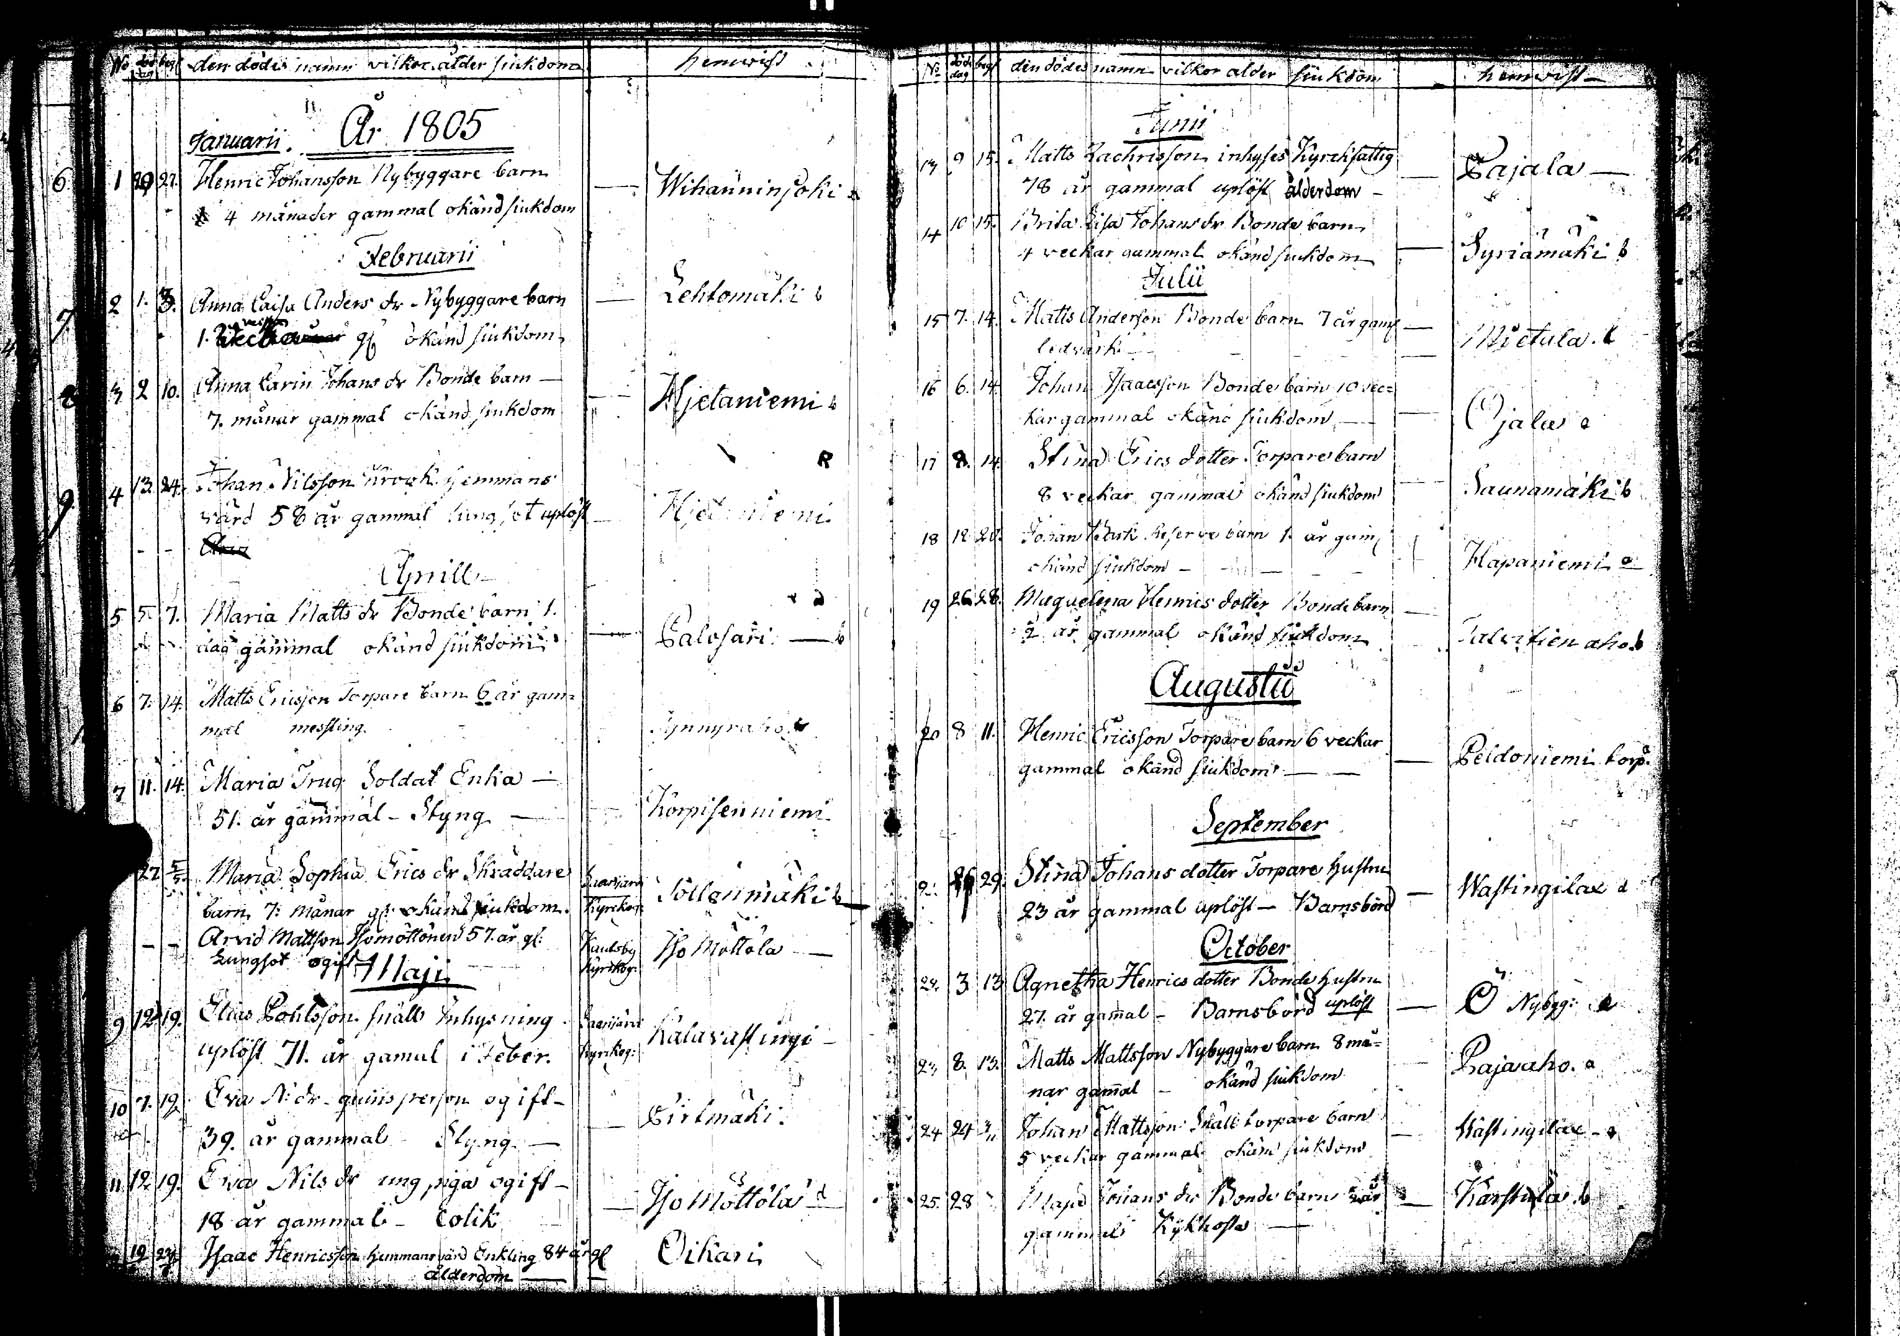 No död dag begr den dödes namn vilkor ålder siukdom hemvist
År 1805
Januarii.
1 29 27. Henric Johansson Nybyggare barn Wihanninjoki
4 månader gammal okänd siukdom
Februarii
2 1. 3. Anna Caisa Anders dr Nybyggare barn Lehtomäki b
1. gl okänd siukdom
3 2 10. Anna Carin Johans dr Bonde barn — Hjetaniemi b
7. månar gammal okänd siukdom
4 13. 24. Johan Nilsson Krook hemmans Hjetaniemi
värd 58 år gammal lungsot uplöst
Aprill
5 5. 7. Maria Matts dr Bonde barn 1. Palosari — b
dag gammal okänd siukdom
6 7. 14. Matts Ericsson Torpare barn 6 år gam-
mal messling.
7 11. 14. Maria Trug Soldat Enka — Korpisenniemi
51. år gammal – Styng —
27 5/5 Maria Sophia Erics dr Skräddare Saarijärvi
barn 7: månar gl: okänd siukdom. Kyrkog:
– – Arvid Mattson Isomöttönen 57. år gl: Iso Möttölä —
Lungsot ogift Kyrkog:
Maji
9 12 19. Elias Pohlsson snälls Inhysning Saarijärvi Kalavastingi –
uplöst 71. år gamal i Feber. Kyrkog:
10 7. 19. Eva N: dr – quins person ogift – Pirtmäki.
39. år gammal Styng. —
11 12. 19. Eva Nils dr ung piga ogift – Iso Möttölä d
18 år gammal – Colik
19 Isaac Henricsson hemmansvärd Enkling 84 år gl Oikari
ålderdom —
No död dag begr den dödes namn vilkor ålder siukdom hemvist –
Junii
13 9 15. Matts Zachrisson inhyses Kyrckfattig Pajala —
78 år gammal uplöst ålderdom –
14 10 15. Brita Lisa Johans dr Bonde barn Syriämäki b
4 veckar gammal okänd siukdom
Julii
15 7. 14. Matts Anderson Bonde barn 7 år gaml — Mietula.
ledvärk –
16 6. 14. Johan Isaacsson Bonde barn 10 vec- Ojala
kar gammal okänd siukdom —
17 8. 14. Stina Erics dotter Torpare barn Saunamäki b
8 veckar gammal okänd siukdom
18 12 20. Johan Reserve barn 1. år gam Hapaniemi
okänd siukdom –
19 26 28. Magdelena Henrics dotter Bonde barn Talvitien aho b
2 år gammal okänd siukdom
Augustii
20 8 11. Henric Ericsson Torpare barn 6 veckar Peldoniemi torp.
gammal okänd siukdom —
September
29. Stina Johans dotter Torpare hustru — Wastingilax
23 år gammal uplöst – Barnsbörd
October
22. 3 13 Agnetha Henrics dotter Bonde hustru Ö Nybyg:
27. år gamal – Barnsbörd uplöst
23 8. 13. Matts Mattsson Nybyggare barn 8 må- Pajuaho. a
nar gamal – okänd siukdom
24 24 Johan Mattsson Snäll torpare barn Wastingilax –
5 veckar gammal okänd siukdom
25. 28 Maja Johans dr Bonde barn 2 år Karstula b
gammal Kykhosta —